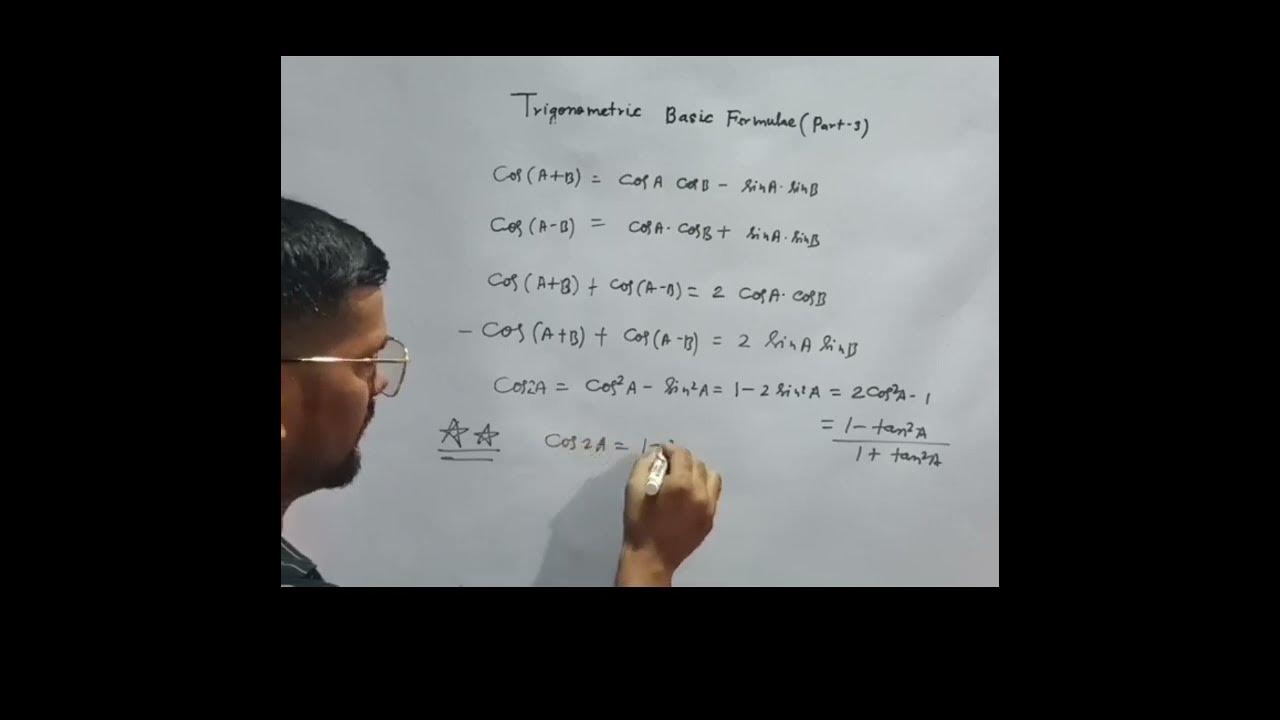 Trigonometric Basic Formulae (Part-3)
Cos(A+B) = CosA CosB - sinA·sinB
Cos(A-B) = CosA·CosB + sinA·sinB
Cos(A+B) + Cos(A-B) = 2 CosA·CosB
- Cos(A+B) + Cos(A-B) = 2 sinA sinB
Cos2A = Cos²A - sin²A = 1 - 2 sin²A = 2Cos²A - 1
= 1 - tan²A
1 + tan²A
Cos2A = 1 -